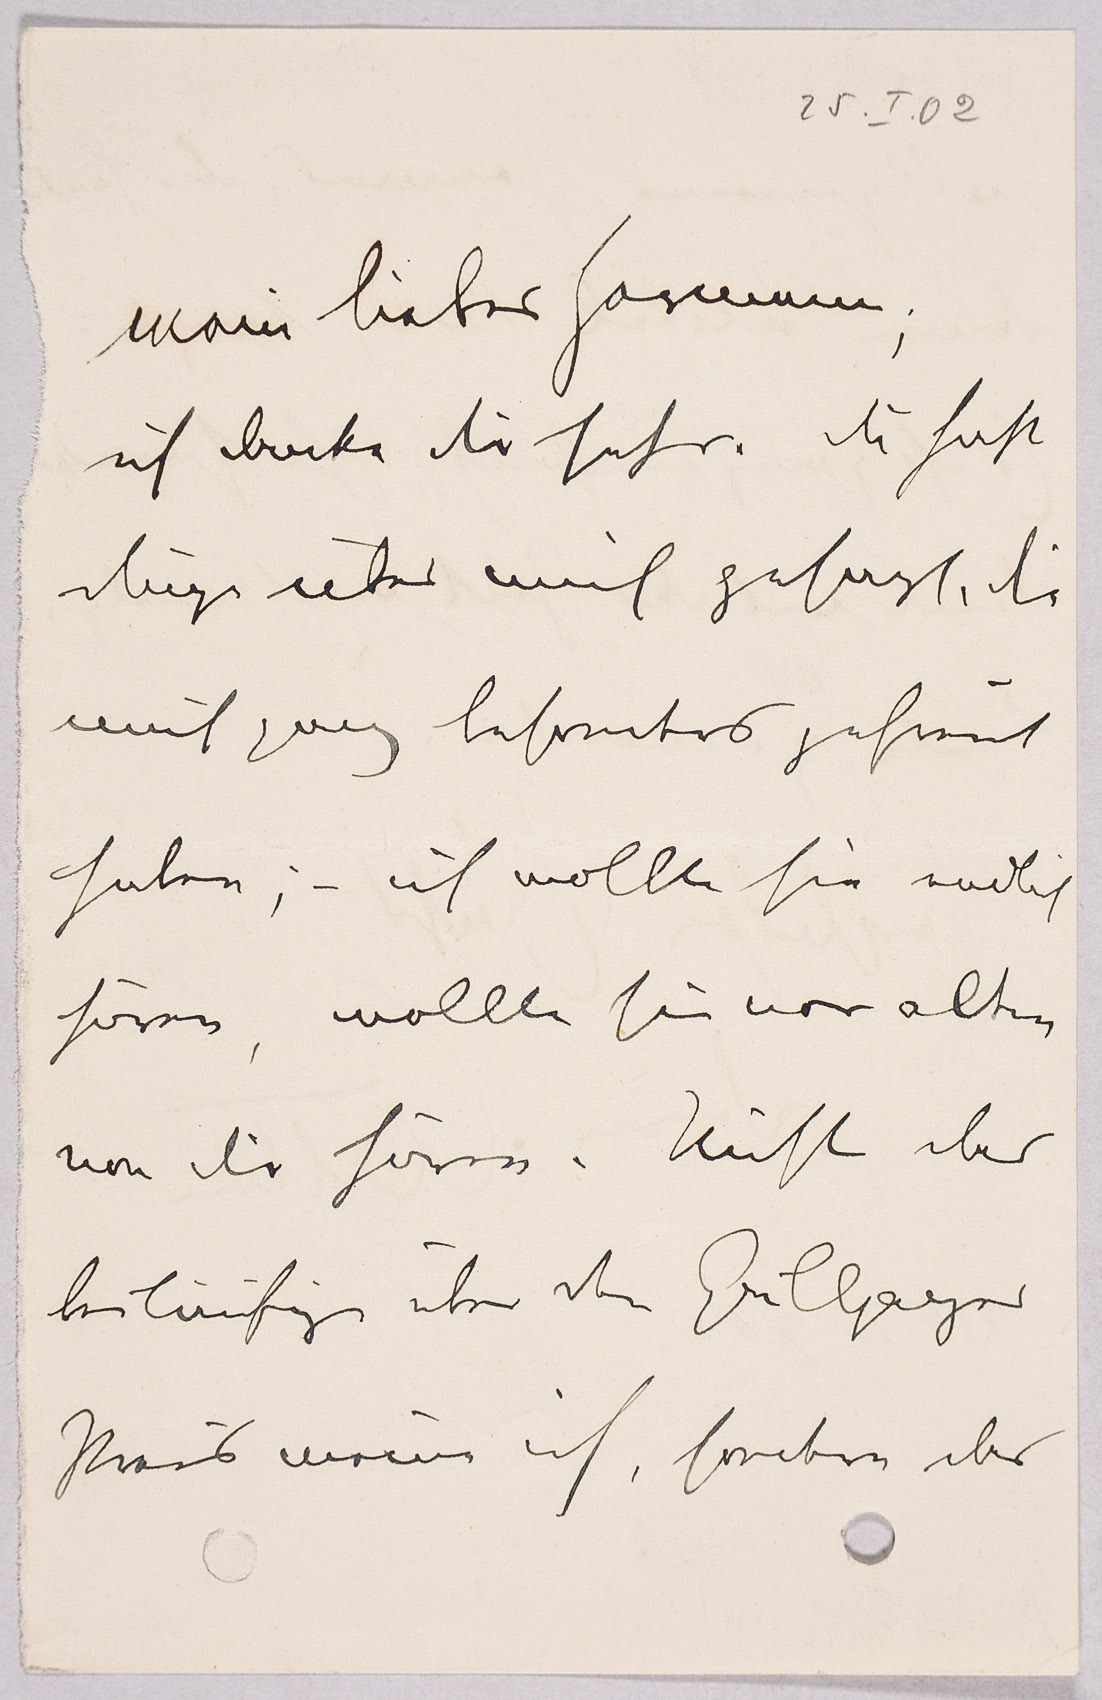 25.I.02
mein lieber Hermann;
ich danke dir sehr. du hast
dinge über mich gesagt, die
mich ganz besonders gefreut
haben; – ich wollte sie endlich
hören, wollte sie vor allem
von dir hören. Nicht das
beiläufige über den Grillparzer
Preis meine ich, sondern das